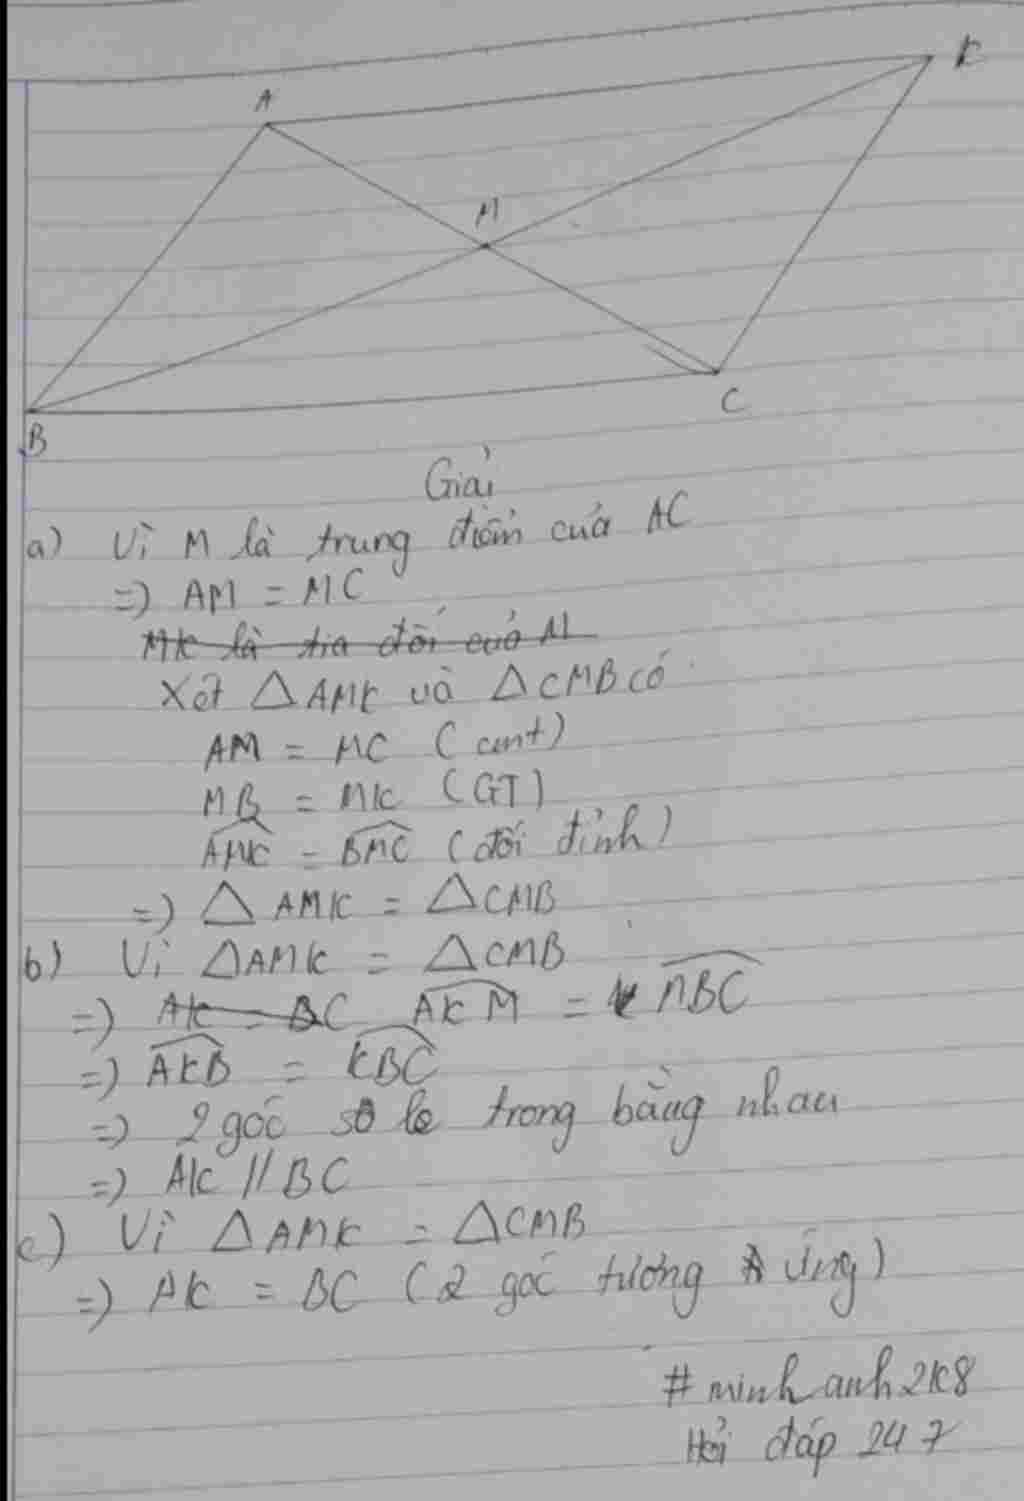 A
K
M
B
C
Giải
a) Vì M là trung điểm của AC
=) AM = MC
MK là tia đối của M
Xét △AMK và △CMB có
AM = MC (cmt)
MB = MK (GT)
AMK = BMC (đối đỉnh)
=) △AMK = △CMB
b) Vì △AMK = △CMB
=) AK = BC AKM = MBC
=) AKB = KBC
=) 2 góc so le trong bằng nhau
=) AK // BC
c) Vì △AMK = △CMB
=) AK = BC (2 góc tương ứng)
# minh anh 2k8
Hỏi đáp 247